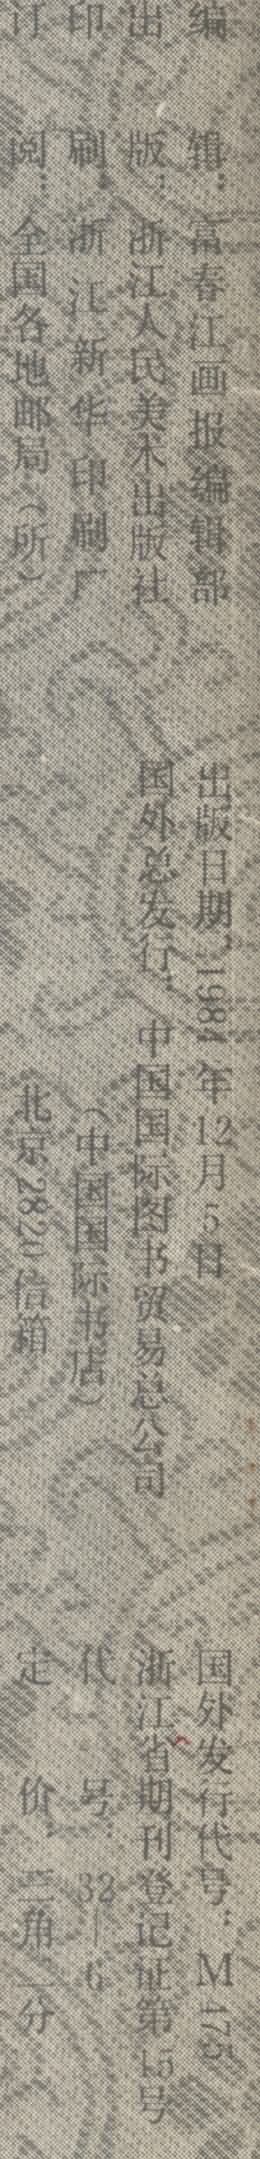 编辑：富春江画报编辑部
出版：浙江人民美术出版社
印刷：浙江新华印刷厂
订阅：全国各地邮局（所）
出版日期：1984年12月5日
国外总发行：中国国际图书贸易总公司
（中国国际书店）
北京2820信箱
国外发行代号：M 475
浙江省期刊登记证第15号
代号：32—6
定价：三角二分